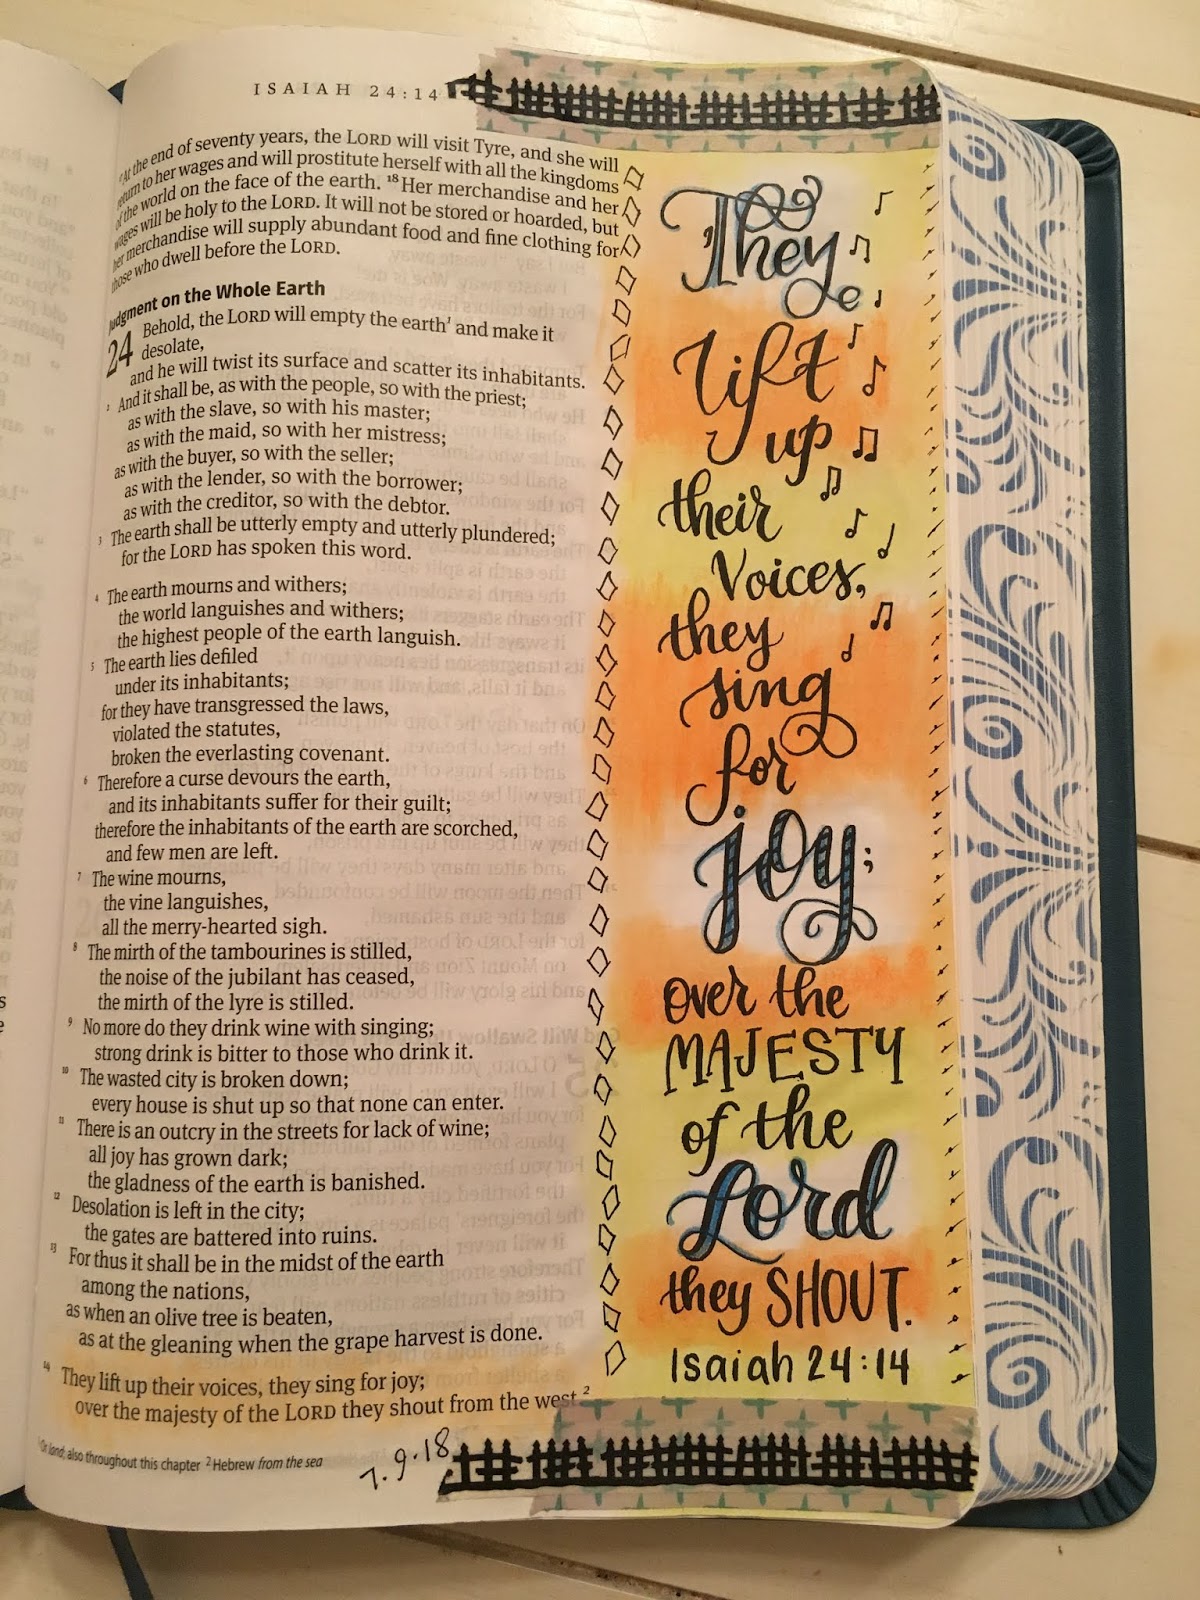 ISAIAH 24:14
At the end of seventy years, the LORD will visit Tyre, and she will
return to her wages and will prostitute herself with all the kingdoms
of the world on the face of the earth. 18 Her merchandise and her
wages will be holy to the LORD. It will not be stored or hoarded, but
her merchandise will supply abundant food and fine clothing for
those who dwell before the LORD.
Judgment on the Whole Earth
24 Behold, the LORD will empty the earth1 and make it
desolate,
and he will twist its surface and scatter its inhabitants.
2 And it shall be, as with the people, so with the priest;
as with the slave, so with his master;
as with the maid, so with her mistress;
as with the buyer, so with the seller;
as with the lender, so with the borrower;
as with the creditor, so with the debtor.
3 The earth shall be utterly empty and utterly plundered;
for the LORD has spoken this word.
4 The earth mourns and withers;
the world languishes and withers;
the highest people of the earth languish.
5 The earth lies defiled
under its inhabitants;
for they have transgressed the laws,
violated the statutes,
broken the everlasting covenant.
6 Therefore a curse devours the earth,
and its inhabitants suffer for their guilt;
therefore the inhabitants of the earth are scorched,
and few men are left.
7 The wine mourns,
the vine languishes,
all the merry-hearted sigh.
8 The mirth of the tambourines is stilled,
the noise of the jubilant has ceased,
the mirth of the lyre is stilled.
9 No more do they drink wine with singing;
strong drink is bitter to those who drink it.
10 The wasted city is broken down;
every house is shut up so that none can enter.
11 There is an outcry in the streets for lack of wine;
all joy has grown dark;
the gladness of the earth is banished.
12 Desolation is left in the city;
the gates are battered into ruins.
13 For thus it shall be in the midst of the earth
among the nations,
as when an olive tree is beaten,
as at the gleaning when the grape harvest is done.
14 They lift up their voices, they sing for joy;
over the majesty of the LORD they shout from the west.2
Or land; also throughout this chapter 2 Hebrew from the sea
7.9.18
They
Lift
up
their
Voices,
they
sing
for
joy;
over the
MAJESTY
of the
Lord
they SHOUT.
Isaiah 24:14